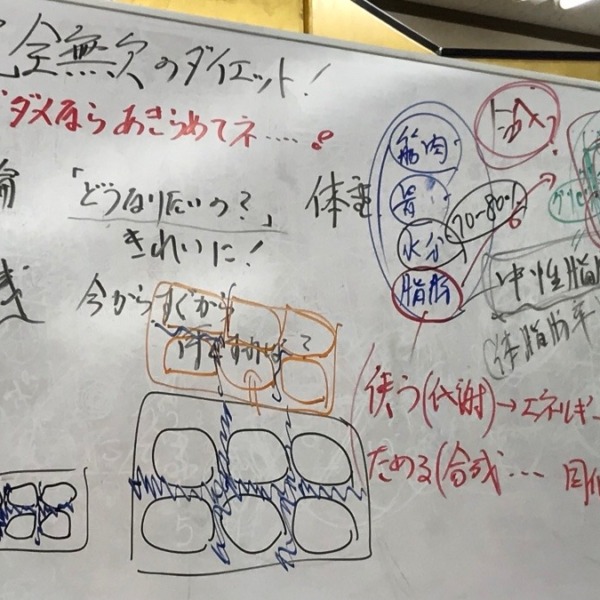 完全無欠のダイエット!
ダメならあきらめてネ....
論
「どうなりたいの?」
きれいに!
体重
筋肉
骨
水分
脂肪
70-80%
中性脂肪
体脂肪率
践
今からすぐから
使う(代謝)→エネルギー
ためる(合成...同化